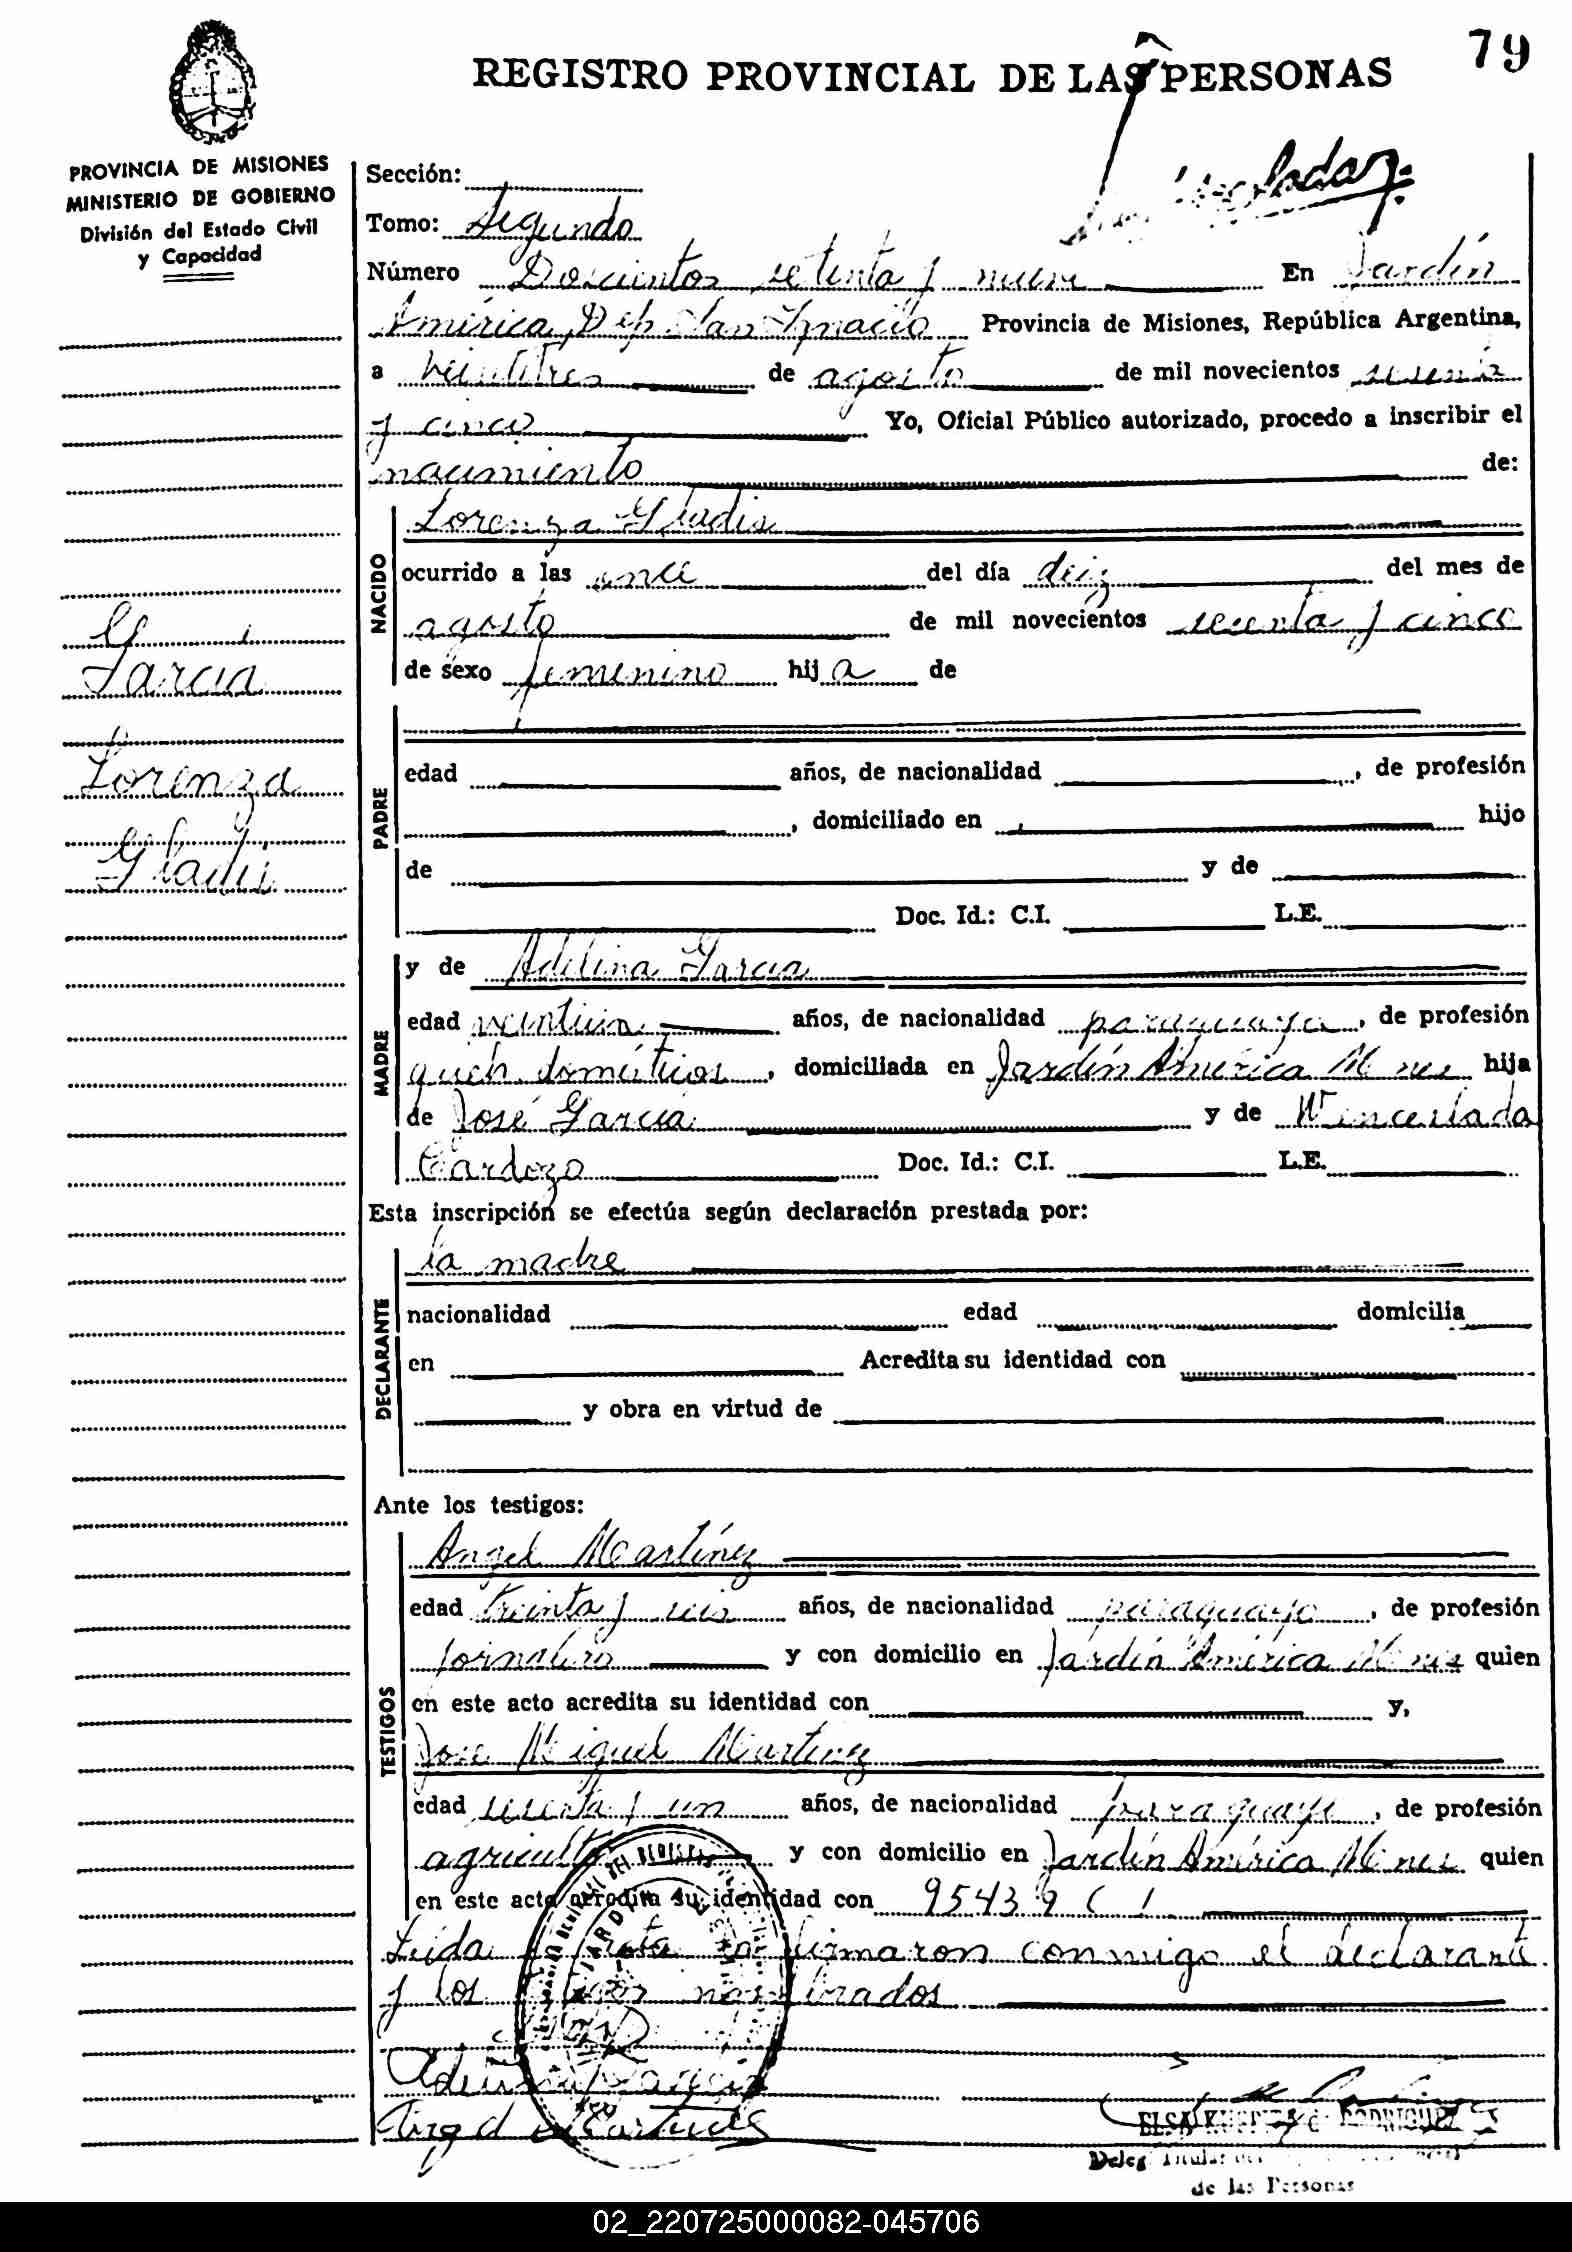 79
REGISTRO PROVINCIAL DE LAS PERSONAS
PROVINCIA DE MISIONES
MINISTERIO DE GOBIERNO
División del Estado Civil
y Capacidad
Sección:
Tomo: Segundo
Número Doscientos setenta y nueve En Jardín
América Dep. San Ignacio Provincia de Misiones, República Argentina,
a veintitres de agosto de mil novecientos sesenta
y cinco Yo, Oficial Público autorizado, procedo a inscribir el
nacimiento de:
NACIDO
Lorenza Gladis
ocurrido a las once del día deiz del mes de
agosto de mil novecientos sesenta y cinco
de sexo femenino hija de
García
Lorenza
Gladis
PADRE
edad años, de nacionalidad , de profesión
, domiciliado en hijo
de y de
Doc. Id.: C.I. L.E.
MADRE
y de Adelina García
edad veintiun años, de nacionalidad paraguaya, de profesión
queh. domésticos, domiciliada en Jardín América Mnes hija
de José García y de Wenceslada
Cardozo Doc. Id.: C.I. L.E.
Esta inscripción se efectúa según declaración prestada por:
DECLARANTE
la madre
nacionalidad edad domicilia
en Acredita su identidad con
y obra en virtud de
Ante los testigos:
TESTIGOS
Angel Martínez
edad treinta y seis años, de nacionalidad paraguayo, de profesión
jornalero y con domicilio en Jardín América Mnes quien
en este acto acredita su identidad con y,
José Miguel Martínez
edad sesenta y un años, de nacionalidad paraguayo, de profesión
agricultor y con domicilio en Jardín América Mnes quien
en este acto acredita su identidad con 95439 C I
Leida el acta la firmaron conmigo el declarante
y los testigos nombrados
Adelina Garcia
Angel Martinez
ELSA RODRIGUEZ
Deleg. Titular
de las Personas
02_220725000082-045706